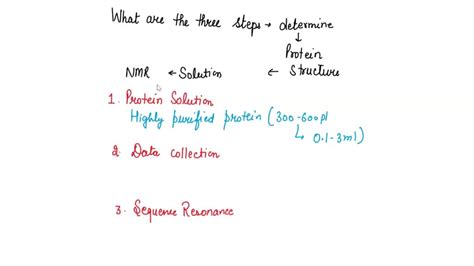 What are the three steps → determine
↓
Protein
NMR ← Solution ← Structure
1. Protein Solution
Highly purified protein (300-600μl
↳ 0.1-3ml)
2. Data collection
3. Sequence Resonance